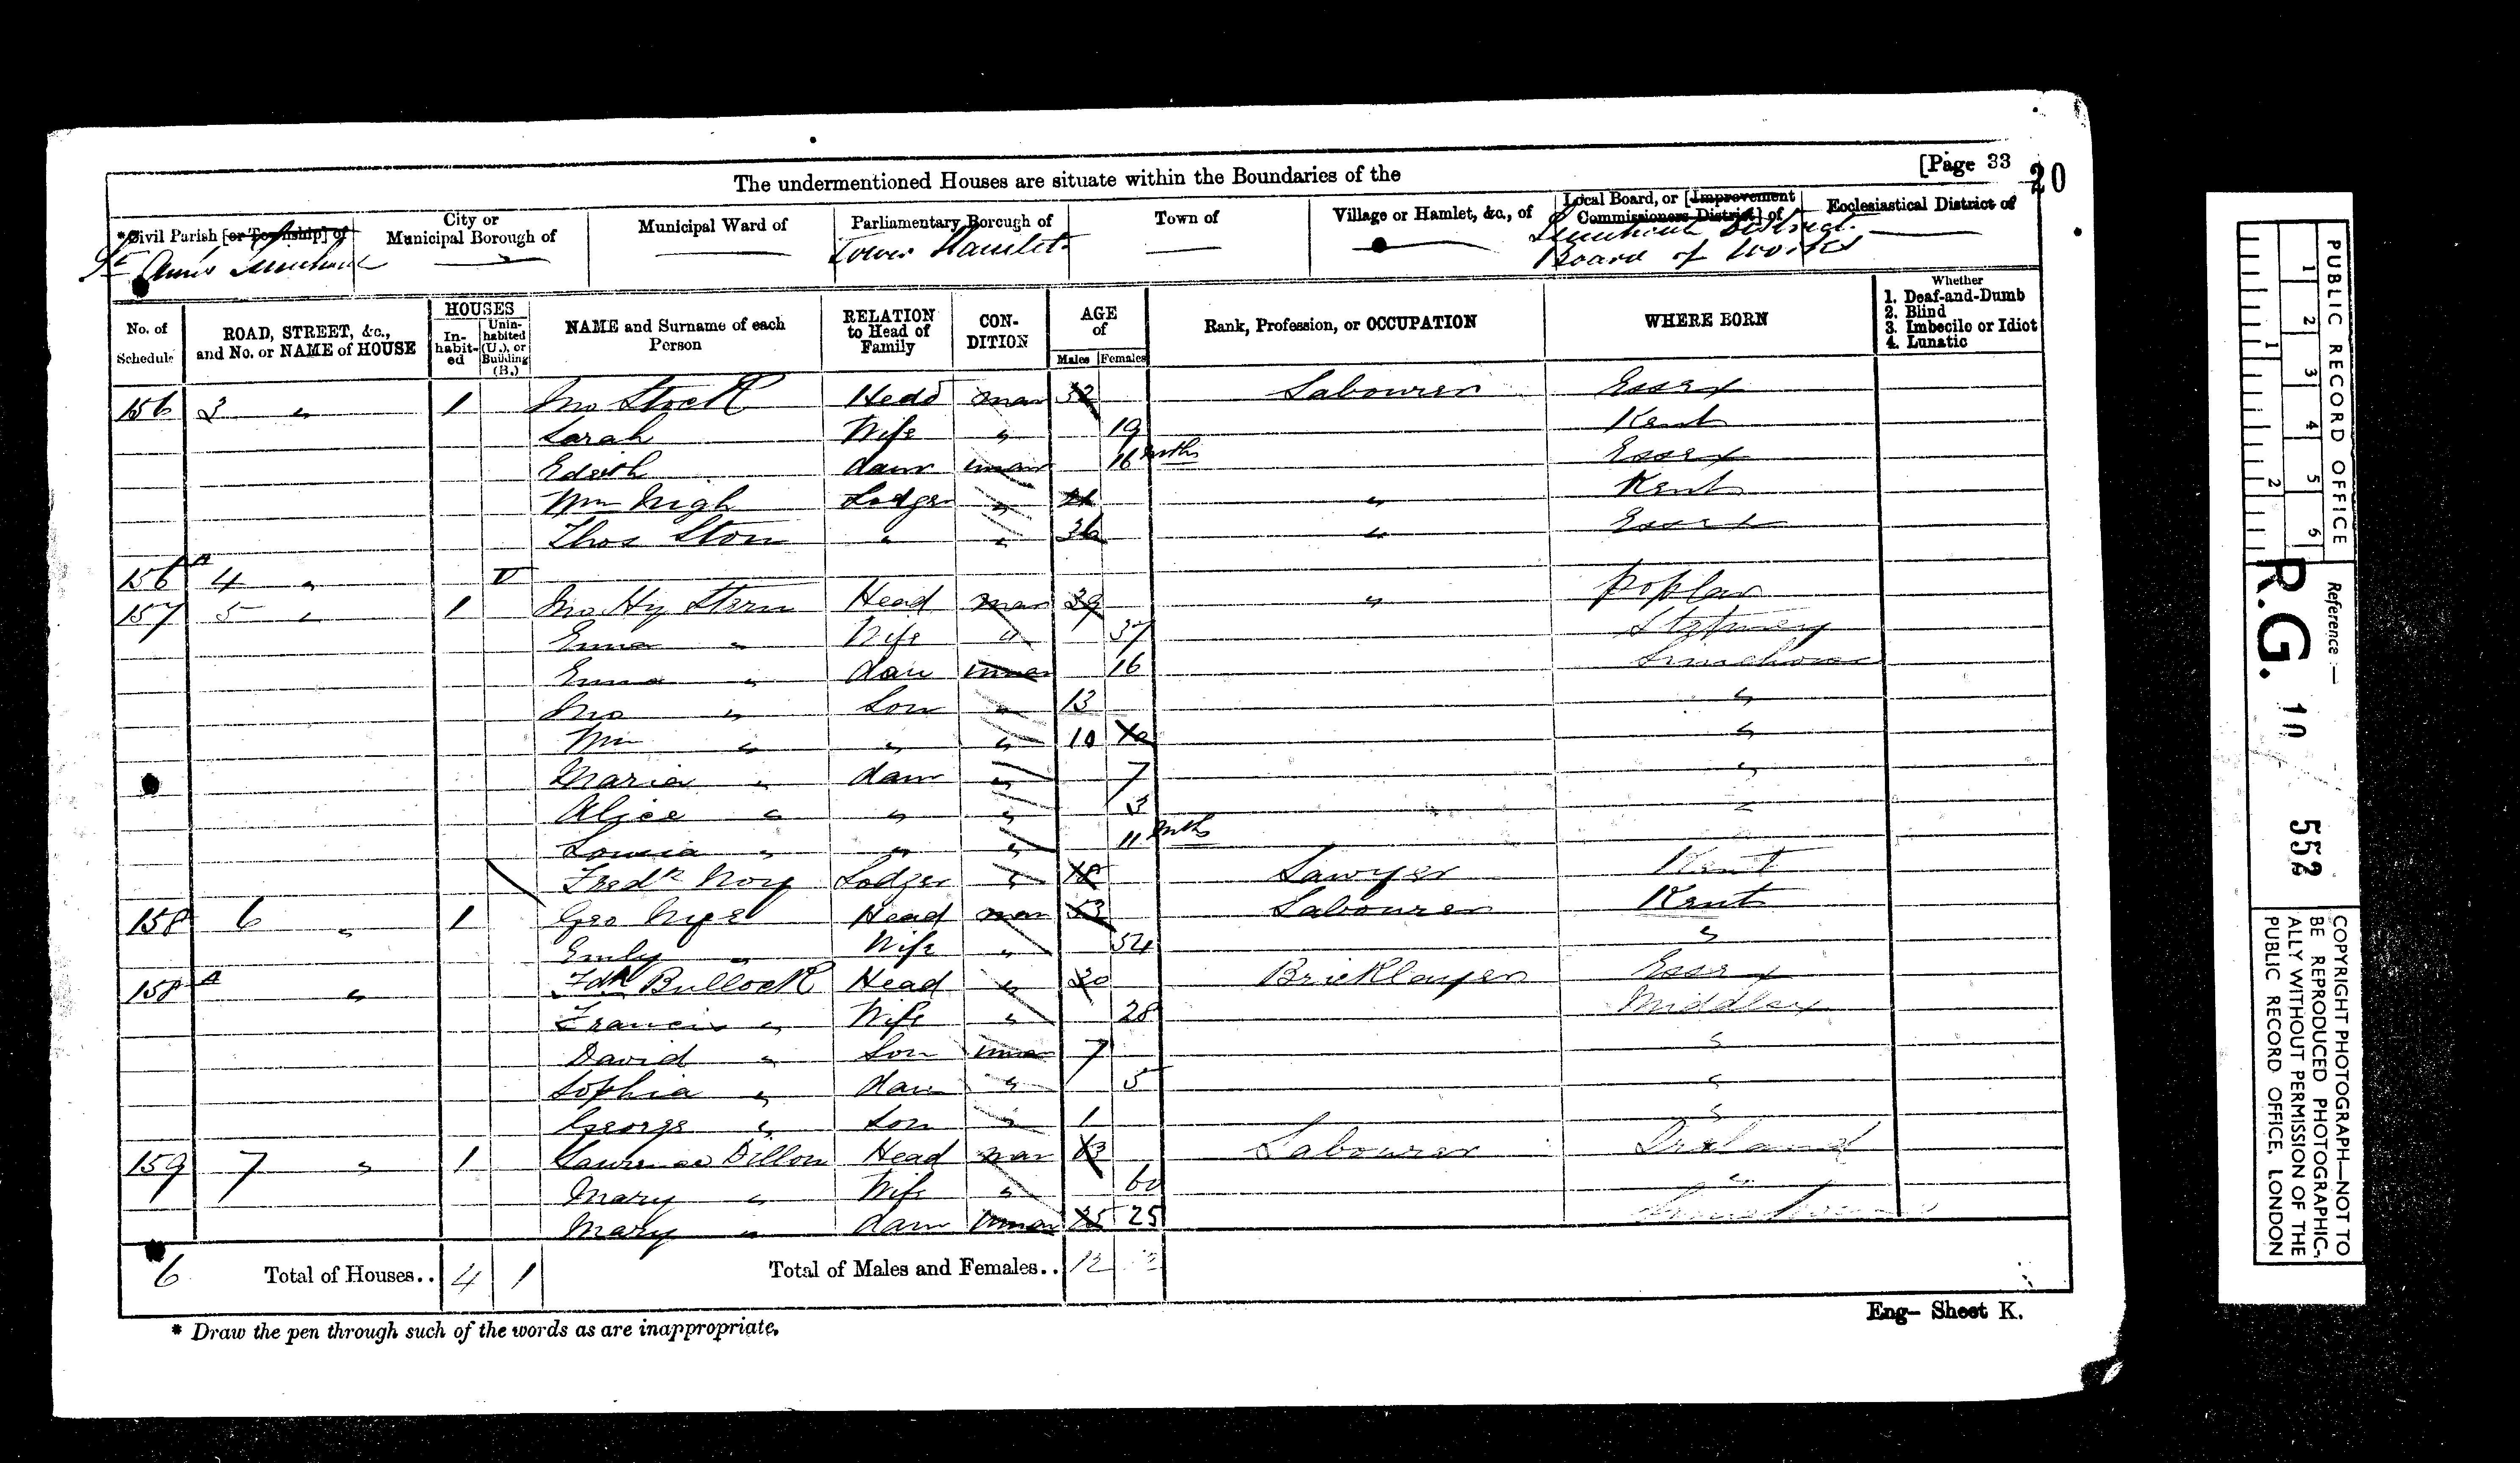 [Page 33
20
The undermentioned Houses are situate within the Boundaries of the
*Civil Parish [or Township] of
City or Municipal Borough of
Municipal Ward of
Parliamentary Borough of
Town of
Village or Hamlet, &c., of
Local Board, or [Improvement Commissioners District] of
Ecclesiastical District of
St Anne Limehouse
Tower Hamlets
Limehouse District
Board of Works
No. of Schedule
ROAD, STREET, &c., and No. or NAME of HOUSE
HOUSES
Inhabited
Uninhabited (U.), or Building (B.)
NAME and Surname of each Person
RELATION to Head of Family
CONDITION
AGE of
Males
Females
Rank, Profession, or OCCUPATION
WHERE BORN
Whether
1. Deaf-and-Dumb
2. Blind
3. Imbecile or Idiot
4. Lunatic
156 3 " 1 Jno Stock Head mar 32 Labourer Essex
Sarah Wife " 19 Kent
Edith daur unmar 16 mths Essex
Wm Lodger " " Kent
Thos " " 36 " Essex
156A 4 " U
157 5 " 1 Jno Hy Head mar 39 " Poplar
Emma " Wife " 37 Stepney
Emma " dau unmar 16 Limehouse
Jno " Son " 13 "
Wm " " " 10 10 "
Maria " daur " 7 "
Alice " " " 3 "
Louisa " " " 11 mths "
Fredk Lodger " 18 Sawyer Kent
158 6 " 1 Geo Head mar 53 Labourer Kent
Emily " Wife " 54 "
158A " Fdk Bullock Head " 30 Bricklayer Essex
Francis " Wife " 28 Middlesex
David " Son unmar 7 "
Sophia " dau " 5 "
George " Son " 1 "
159 7 " 1 Lawrence Dillon Head mar 63 Labourer Ireland
Mary " Wife " 60 "
Mary " daur unmar 25 25 Limehouse
6 Total of Houses.. 4 1 Total of Males and Females.. 12
* Draw the pen through such of the words as are inappropriate.
Eng- Sheet K.
PUBLIC RECORD OFFICE
1 2 3 4 5 6
1 2
Reference :-
R.G. 10 552
COPYRIGHT PHOTOGRAPH—NOT TO
BE REPRODUCED PHOTOGRAPHIC-
ALLY WITHOUT PERMISSION OF THE
PUBLIC RECORD OFFICE, LONDON